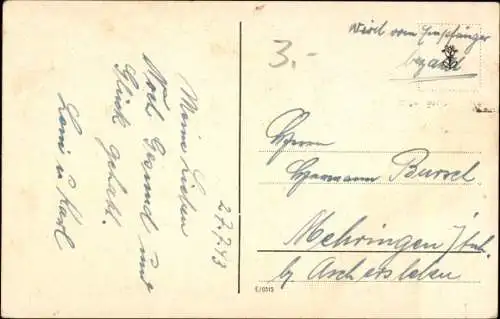 Meine Lieben
Noch Gesund und
Glück gehabt.
Leni u Karl
27.7.43
3.-
Wird vom Empfänger
bezahlt
Herrn
Hermann Bursch
Mehringen / Anh.
b/ Aschersleben